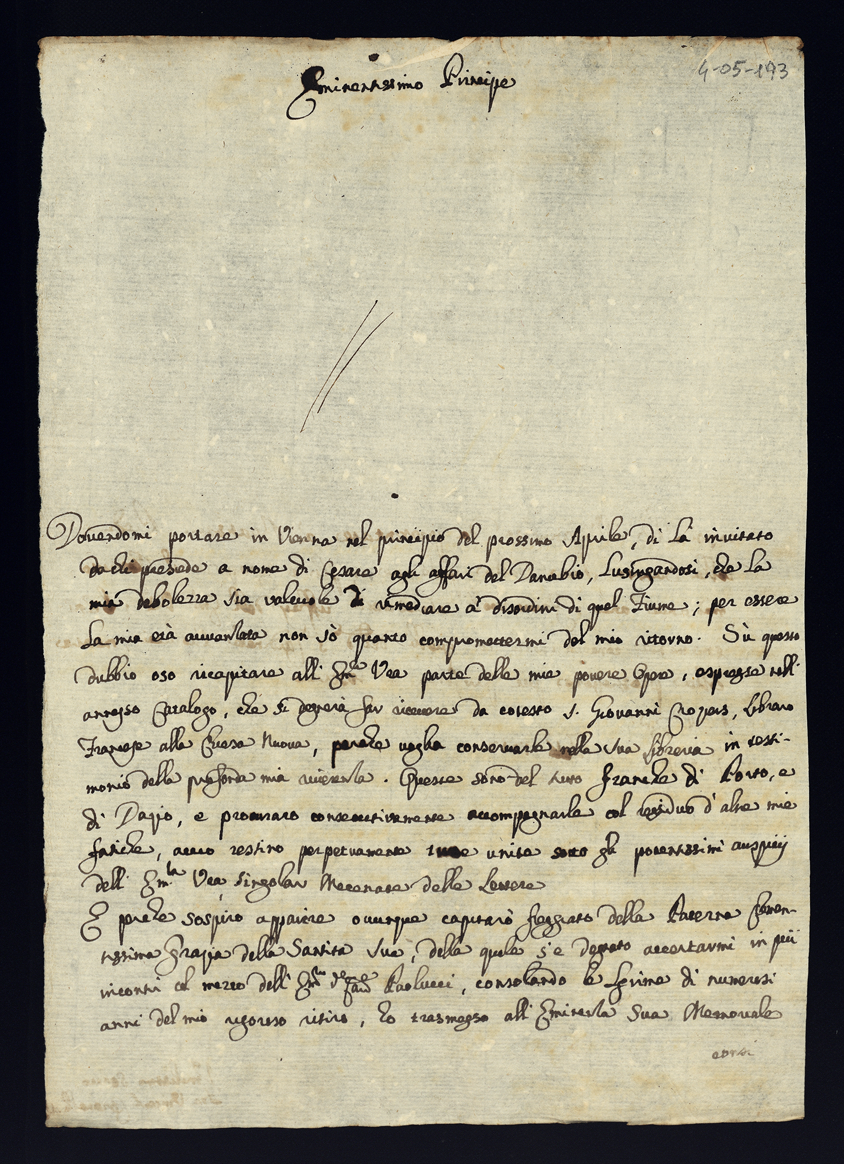 4-05-193
Eminentissimo Principe
Dovendomi portare in Vienna nel principio del prossimo Aprile, di là invitato
da chi presiede a nome di Cesare agli affari del Danubio, Lusingandosi, che la
mia debolezza sia valevole di rimediare a' disordini di quel Fiume; per essere
La mia età avvanzata non sò quanto compromettermi del mio ritorno. Sù questo
dubbio oso ricapitare all' Em.ª Vr̃a parte delle mie povere Opere, espresse nell'
annesso Catalogo, che si degnerà far ricevere da cotesto S. Giovanni Crozers, Libraro
Francese alla Chiesa Nuova, perche voglia conservarle nella Sua libreria in testi-
monio della profonda mia riverenza. Queste sono del tutto franche di Porto, e
di Dazio, e procurarò consecutivamente accompagnarle col residuo d'altre mie
fatiche, acciò restino perpetuamente tutte unite sotto gli potentissimi auspicij
dell' Em.za Vr̃a, singolar Mecenate delle Lettere
E perche sospiro apparire ovunque capitarò freggiato della Paterna Clemen-
tissima Grazia della Santità Sua, della quale s'è degnato accertarmi in più
incontri col mezzo dell' Em.mo Paolucci, consolando le lagrime di numerosi
anni del mio rigoroso ritiro, hò trasmesso all' Eminenza Sua Memoriale